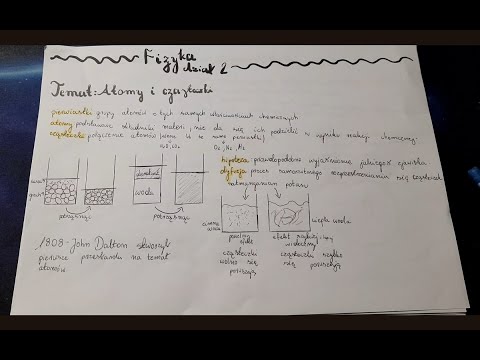 Fizyka
dział 2
Temat: Atomy i cząsteczki
pierwiastki grupy atomów o tych samych właściwościach chemicznych
atomy podstawowe składniki materii, nie da się ich podzielić w wyniku reakcji chemicznej
cząsteczka połączenie atomów (wiem to te same pierwiastki)
O₂, H₂, N₂
hipoteza prawdopodobne wyjaśnienie jakiegoś zjawiska
dyfuzja proces samorzutnego rozprzestrzeniania się cząsteczek
nadmanganian potasu
denaturat
woda
groch
potrząsamy
potrząsamy
zimna woda
ciepła woda
powoli
efekt
cząsteczki wolno się poruszają
cząsteczki szybko się poruszają
1808 - John Dalton stworzył
pierwsze przesłanki na temat
atomów